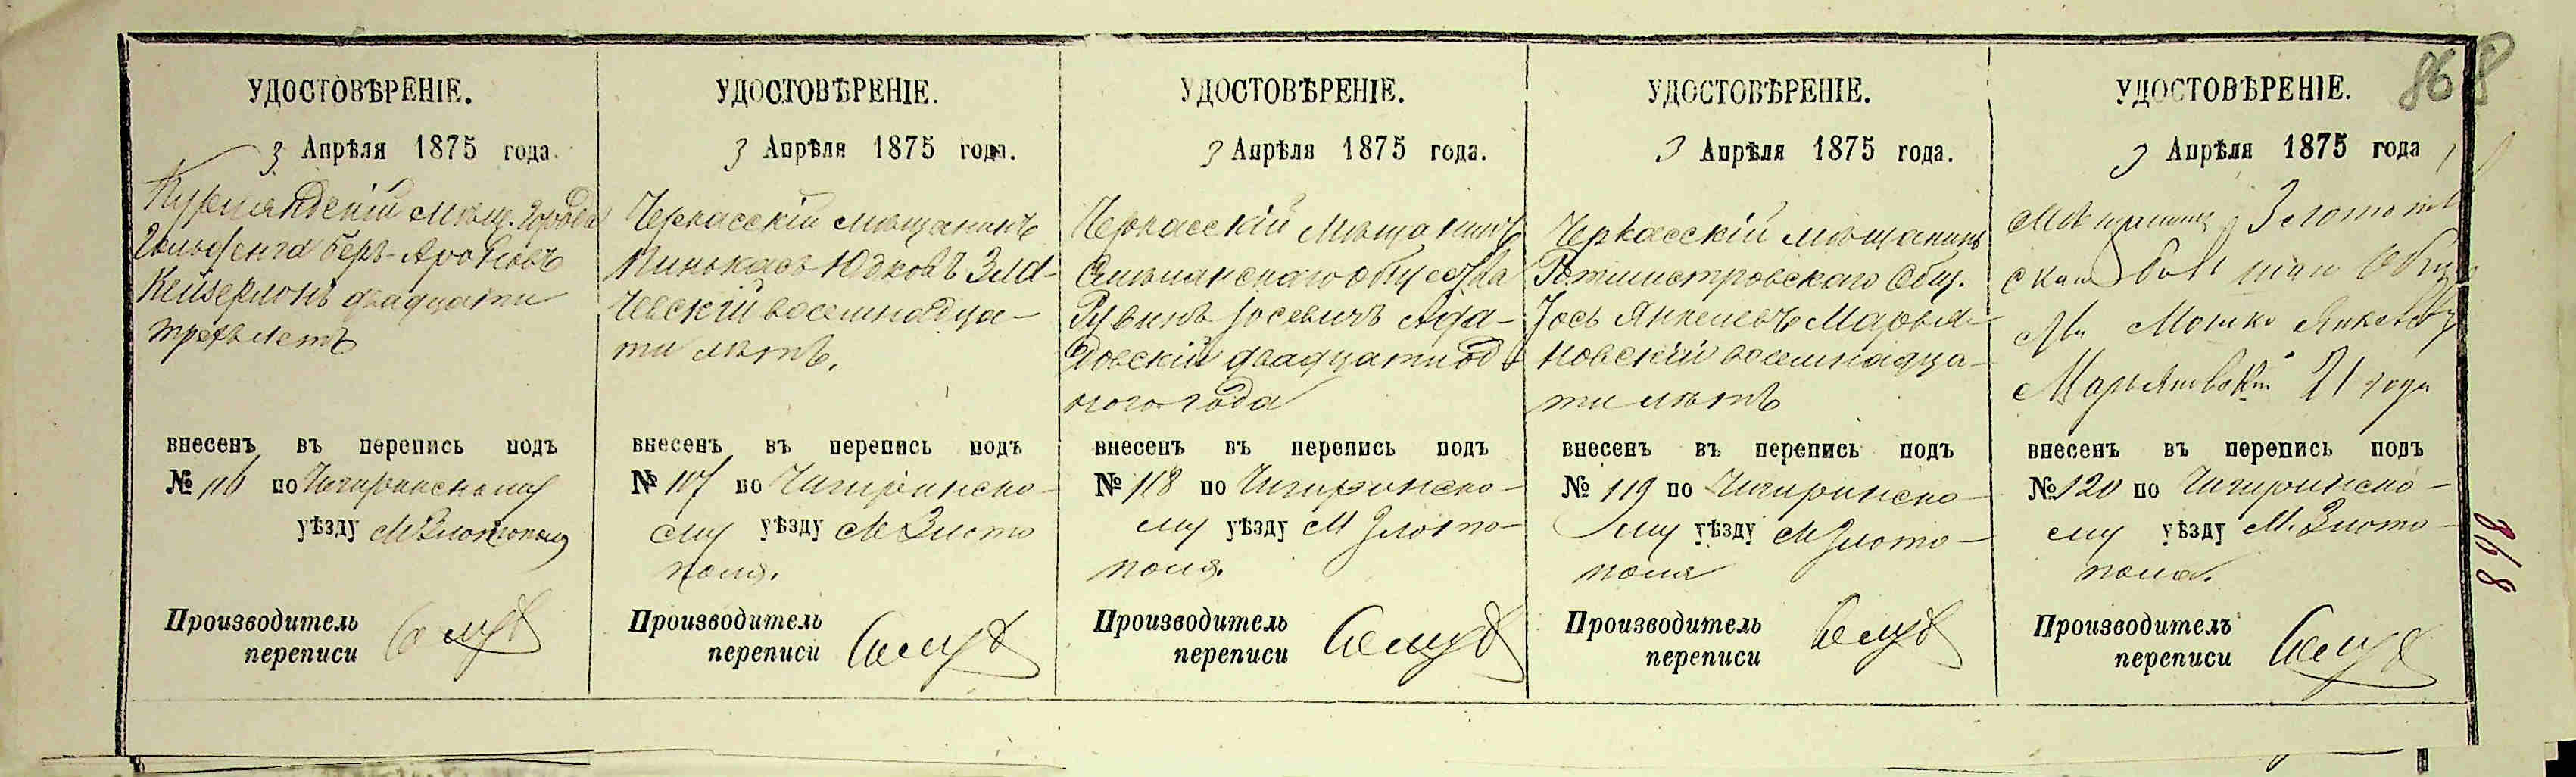 868
УДОСТОВѢРЕНІЕ.
3 Апрѣля 1875 года.
Курляндскій мѣщ. города
Беръ-Ароновъ
Кейзерлонъ двадцати
трехъ летъ
внесенъ въ перепись подъ
№ 116 по Чигиринскому
уѣзду М Златополя
Производитель
переписи
УДОСТОВѢРЕНІЕ.
3 Апрѣля 1875 года.
Черкасскій мѣщанинъ
Пинькасъ Юдковъ Зла-
чевскій восемнадца-
ти лѣтъ.
внесенъ въ перепись подъ
№ 117 по Чигиринско-
му уѣзду М Злото
поля.
Производитель
переписи
УДОСТОВѢРЕНІЕ.
3 Апрѣля 1875 года.
Черкасскій мѣщанинъ
Смѣлянскаго общества
Рувинъ Іосевичъ Ада-
довскій двадцати од
ного года
внесенъ въ перепись подъ
№ 118 по Чигиринско-
му уѣзду М Злото-
поля.
Производитель
переписи
УДОСТОВѢРЕНІЕ.
3 Апрѣля 1875 года.
Черкасскій мѣщанинъ
Ротмистровскаго Общ.
Іось Янкелевъ Марья-
новскій восемнадца-
ти лѣтъ
внесенъ въ перепись подъ
№ 119 по Чигиринско-
му уѣзду М Злото-
поля
Производитель
переписи
УДОСТОВѢРЕНІЕ.
3 Апрѣля 1875 года
Мѣщанинъ
Мошко Янкелевъ
Марьяновскій 21 года
внесенъ въ перепись подъ
№ 120 по Чигиринско-
му уѣзду М. Злото-
поля.
Производитель
переписи
868